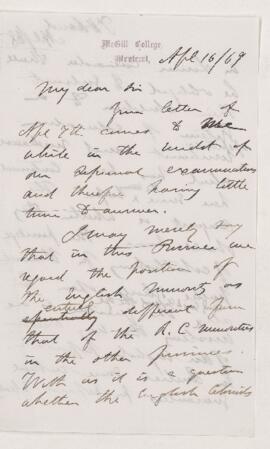 McGill College,
Montreal, Apl 16/69
My dear Sir
Your letter of
Apl 7th comes to me
while in the midst of
our sessional examinations
and therefore having little
time to answer.
I may merely say
that in this Province we
regard the position of
the English minority as
entirely
different from
that of the R.C minorities
in the other provinces.
With us it is a question
whether the English schools